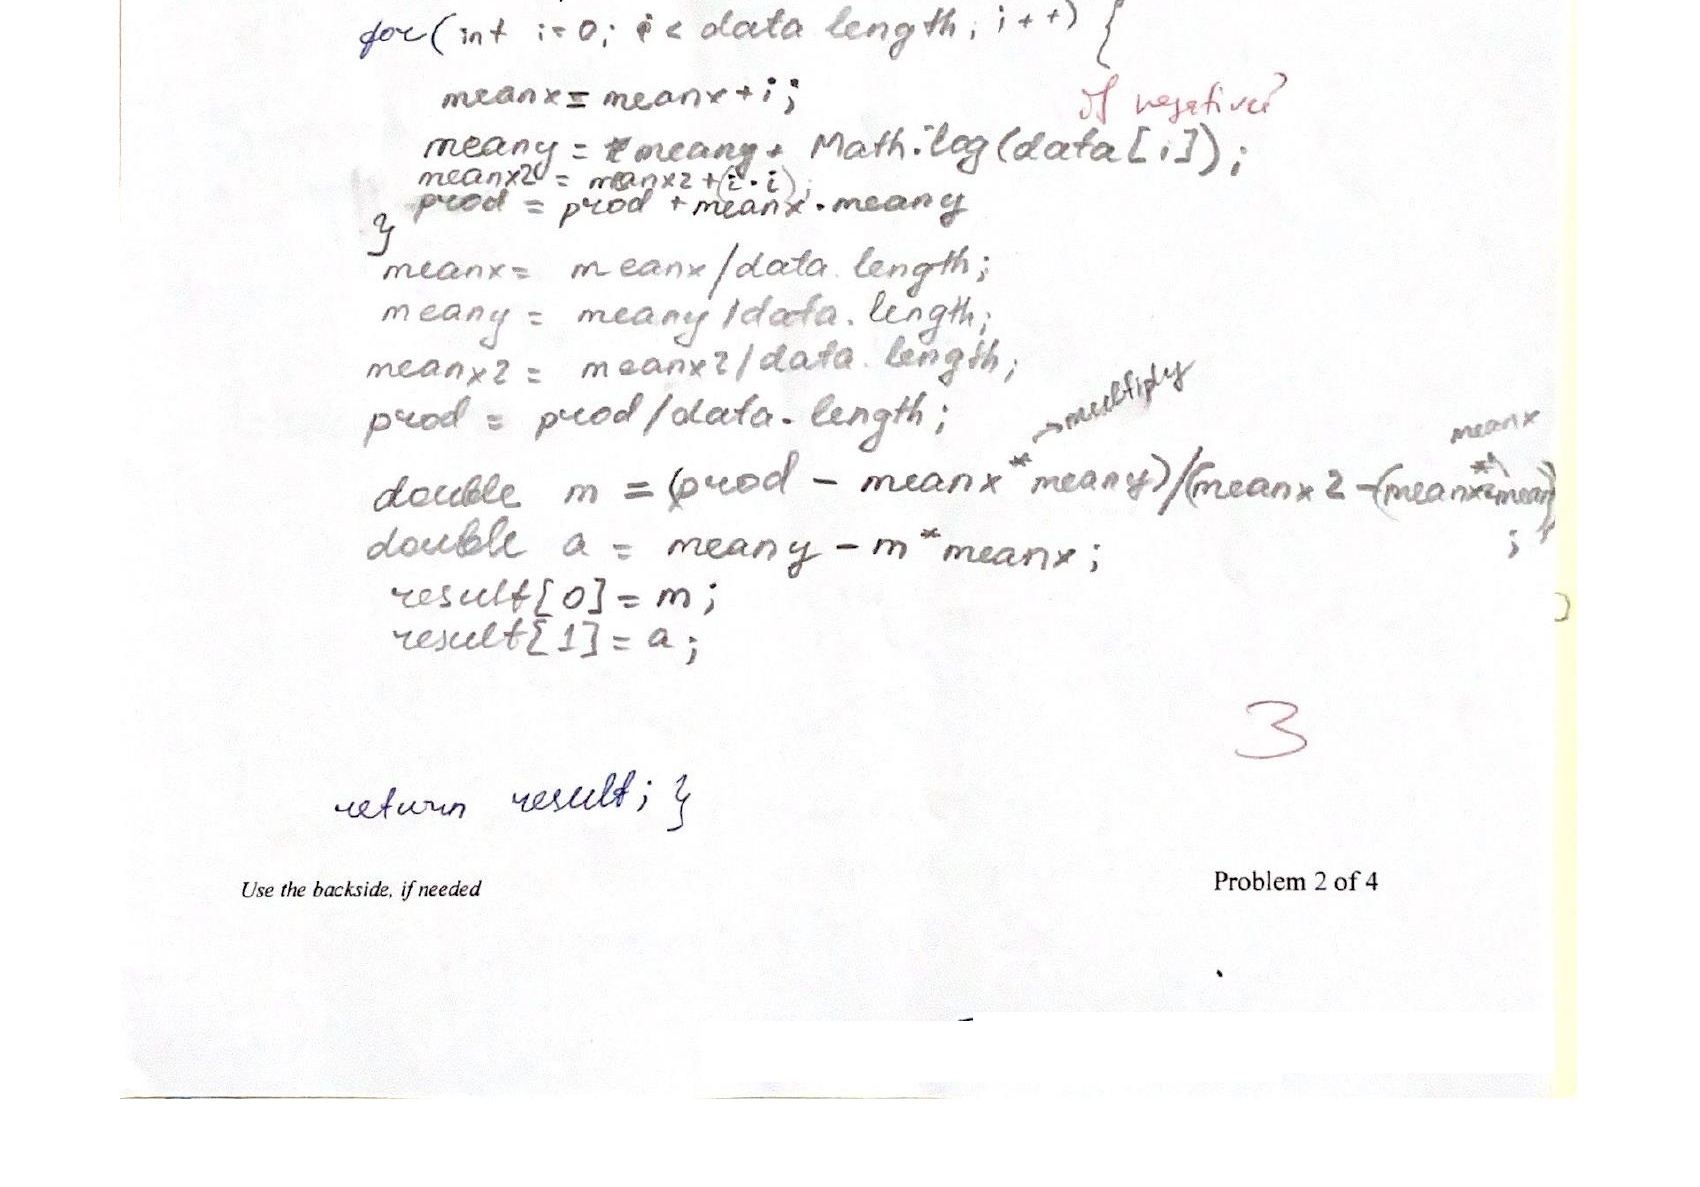 for(int i=0; i < data length; i++) {
meanx = meanx + i;
If negative?
meany = meany + Math.log(data[i]);
meanx2 = meanx2 + (i · i);
prod = prod + meanx · meany
}
meanx = meanx/data. length;
meany = meany/data. length;
meanx2 = meanx2/data. length;
prod = prod/data. length;
→ multiply
meanx
double m = (prod - meanx * meany)/(meanx2 - (meanx
;
double a = meany - m * meanx;
result[0] = m;
result[1] = a;
3
return result; }
Use the backside, if needed
Problem 2 of 4